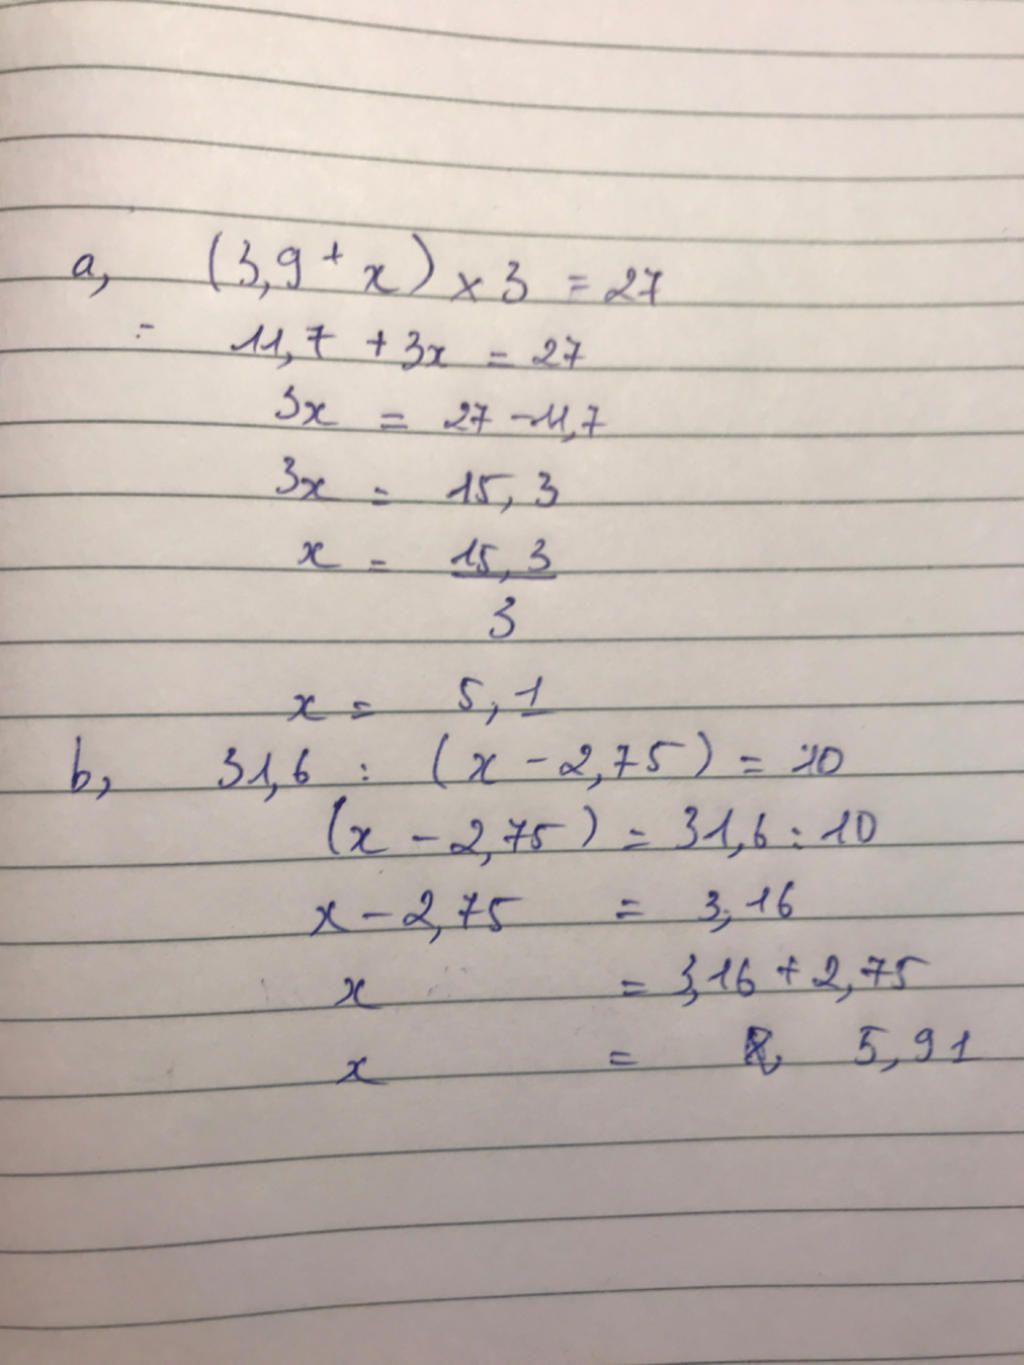 a, (3,9 + x) × 3 = 27
= 11,7 + 3x = 27
3x = 27 - 11,7
3x = 15,3
x = 15,3
3
x = 5,1
b, 31,6 : (x - 2,75) = 10
(x - 2,75) = 31,6 : 10
x - 2,75 = 3,16
x = 3,16 + 2,75
x = 5,91